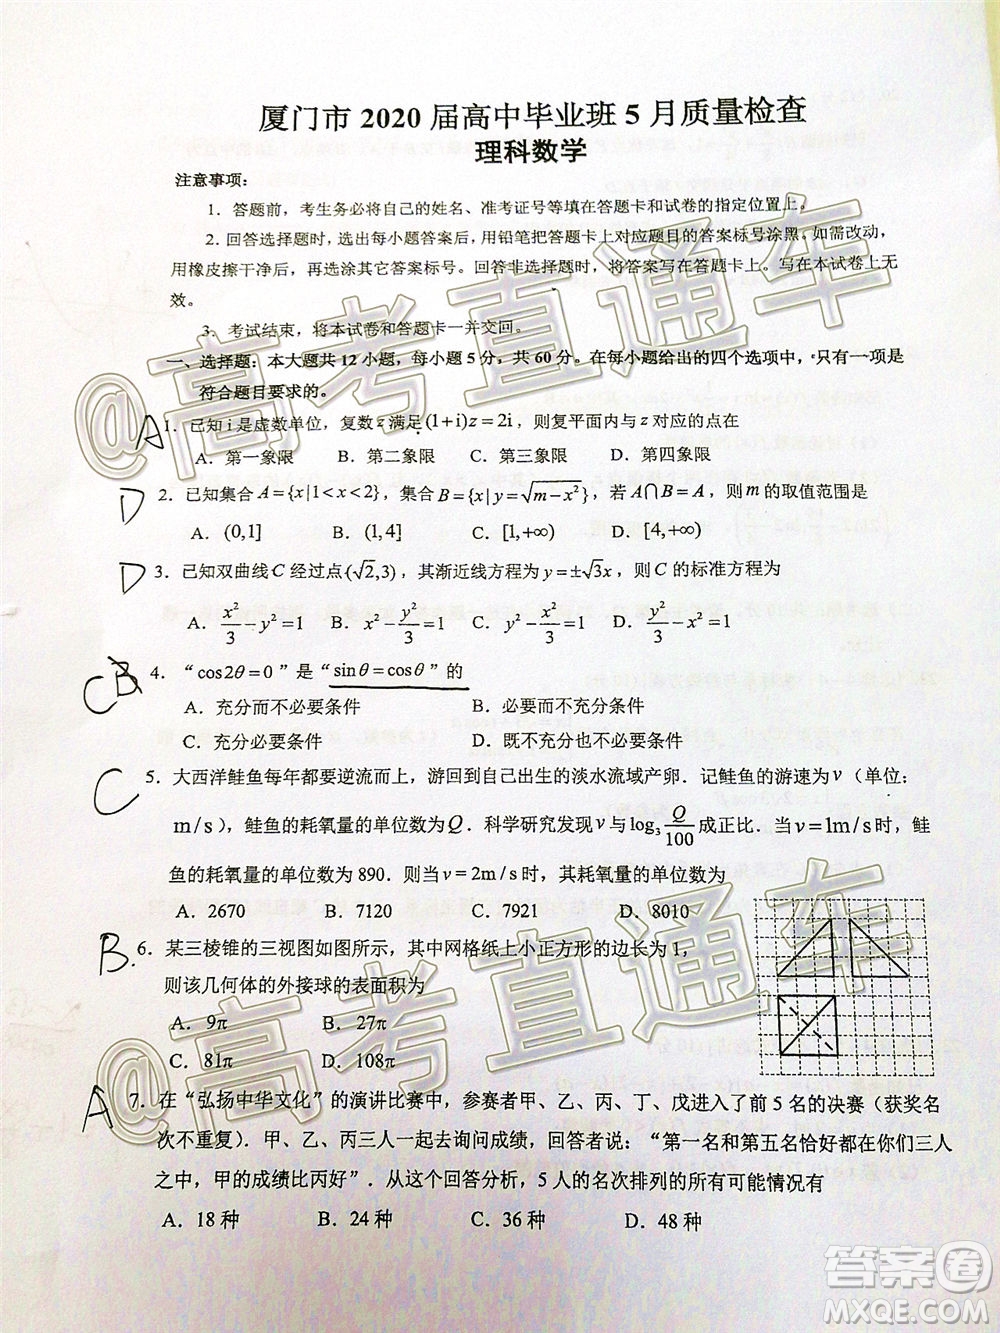 厦门市 2020 届高中毕业班 5 月质量检查
理科数学
注意事项：
1．答题前，考生务必将自己的姓名、准考证号等填在答题卡和试卷的指定位置上。
2．回答选择题时，选出每小题答案后，用铅笔把答题卡上对应题目的答案标号涂黑。如需改动，
用橡皮擦干净后，再选涂其它答案标号。回答非选择题时，将答案写在答题卡上。写在本试卷上无
效。
3．考试结束，将本试卷和答题卡一并交回。
一、选择题：本大题共 12 小题，每小题 5 分，共 60 分。在每小题给出的四个选项中，只有一项是
符合题目要求的。
A 1．已知 i 是虚数单位，复数 z 满足 (1+i)z=2i，则复平面内与 z 对应的点在
A．第一象限 B．第二象限 C．第三象限 D．第四象限
D 2．已知集合 A={x|1<x<2}，集合 B={x|y=√(m-x²)}，若 A∩B=A，则 m 的取值范围是
A．(0,1] B．(1,4] C．[1,+∞) D．[4,+∞)
D 3．已知双曲线 C 经过点 (√2,3)，其渐近线方程为 y=±√3x，则 C 的标准方程为
A．x²/3-y²=1 B．x²-y²/3=1 C．y²-x²/3=1 D．y²/3-x²=1
C B 4．“cos2θ=0”是“sinθ=cosθ”的
A．充分而不必要条件 B．必要而不充分条件
C．充分必要条件 D．既不充分也不必要条件
C 5．大西洋鲑鱼每年都要逆流而上，游回到自己出生的淡水流域产卵．记鲑鱼的游速为 v（单位：
m/s），鲑鱼的耗氧量的单位数为 Q．科学研究发现 v 与 log₃ Q/100 成正比．当 v=1m/s 时，鲑
鱼的耗氧量的单位数为 890．则当 v=2m/s 时，其耗氧量的单位数为
A．2670 B．7120 C．7921 D．8010
B. 6．某三棱锥的三视图如图所示，其中网格纸上小正方形的边长为 1，
则该几何体的外接球的表面积为
A．9π B．27π
C．81π D．108π
A 7．在“弘扬中华文化”的演讲比赛中，参赛者甲、乙、丙、丁、戊进入了前 5 名的决赛（获奖名
次不重复）．甲、乙、丙三人一起去询问成绩，回答者说：“第一名和第五名恰好都在你们三人
之中，甲的成绩比丙好”．从这个回答分析，5 人的名次排列的所有可能情况有
A．18 种 B．24 种 C．36 种 D．48 种
@高考直通车
@高考直通车
答案卷
MXQE.COM